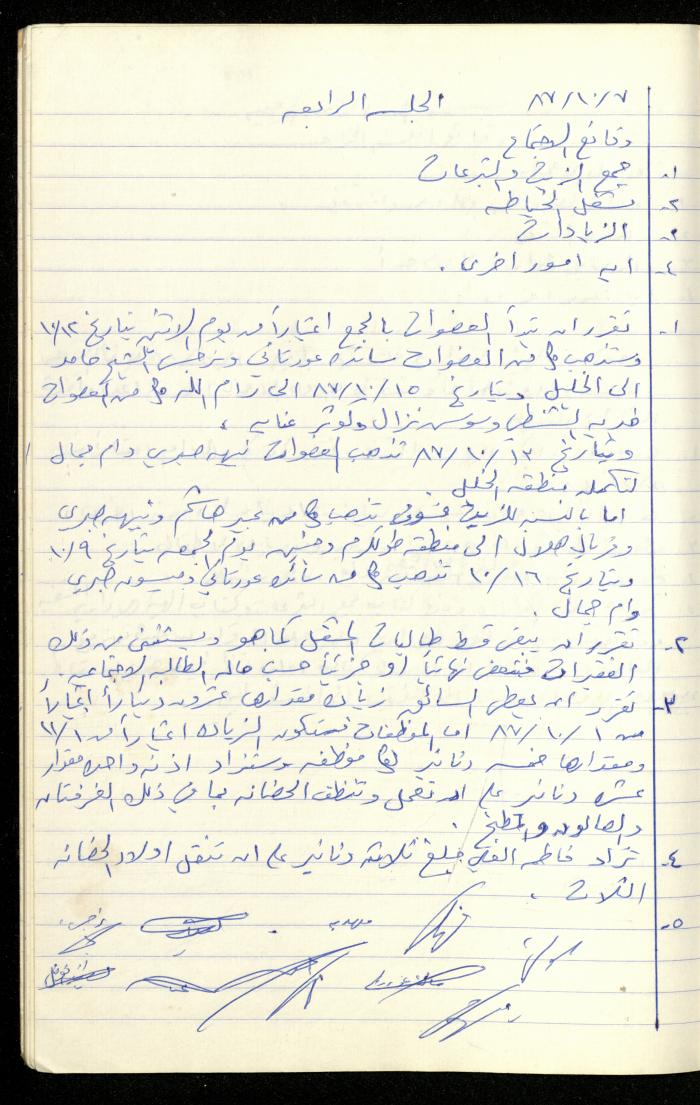 ٨٧/١٠/٧ الجلسه الرابعه
وقائع الاجتماع
١- جمع الزيت والتبرعات
٢- مشغل الخياطه
٣- الزيادات
٤- ايه امور اخرى .
١- تقرر ان تبدأ العضوات بالجمع اعتباراً من يوم الاثنين بتاريخ ١٠/١٢
وستذهب كل من العضوات سائده عورتاني ونرجس الشيخ حامد
الى الخليل وبتاريخ ٨٧/١٠/١٥ الى رام الله كل من العضوات
خيريه الشنطي وسوسن نزال وكوثر عنايه .
وبتاريخ ٨٧/١٠/١٣ تذهب العضوات نبيهه صبري وام جمال
لتكملة منطقه الخليل .
اما بالنسبه للزيت فسوف تذهب كل من عبير هاشم ونبيهه صبري
وفريال هلال الى منطقه طولكرم وجنين يوم الجمعه بتاريخ ١٠/٩
وبتاريخ ١٠/١٦ تذهب كل من سائده عورتاني وميسون صبري
وام جمال .
٢- تقرر ان يبقى قسط طالبات المشغل كما هو ويستثنى من ذلك
الفقيرات فتعفى نهائياً او جزئياً حسب حاله الطالبه الاجتماعيه .
٣- تقرر ان يعطى السائق زياده مقدارها عشرون ديناراً اعتباراً
من ٨٧/١٠/١ اما الموظفات فستكون الزياده اعتباراً من ١١/١
ومقدارها خمسه دنانير لكل موظفه وستزاد اذنه واحده مقدار
عشره دنانير على ان تعمل وتنظف الحضانه بما في ذلك الغرفتان
والصالون والمطبخ .
٤- تزاد فاطمه مبلغ ثلاثة دنانير على ان تنقل اولاد الحضانه
الثلاث .
٥-